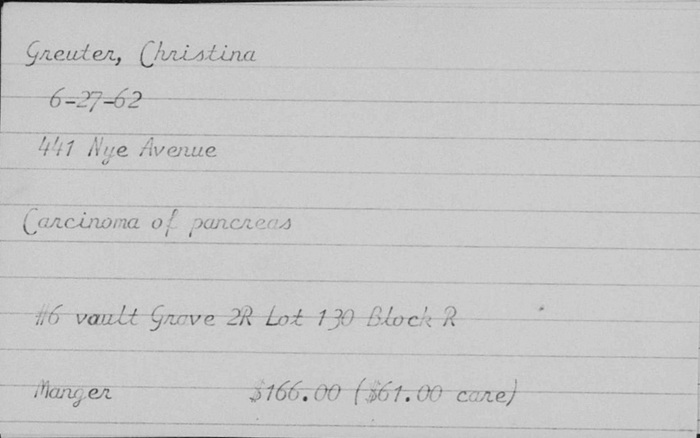 Greuter, Christina
6-27-62
441 Nye Avenue
Carcinoma of pancreas
#6 vault Grave 2R Lot 130 Block R
Manger $166.00 ($61.00 care)